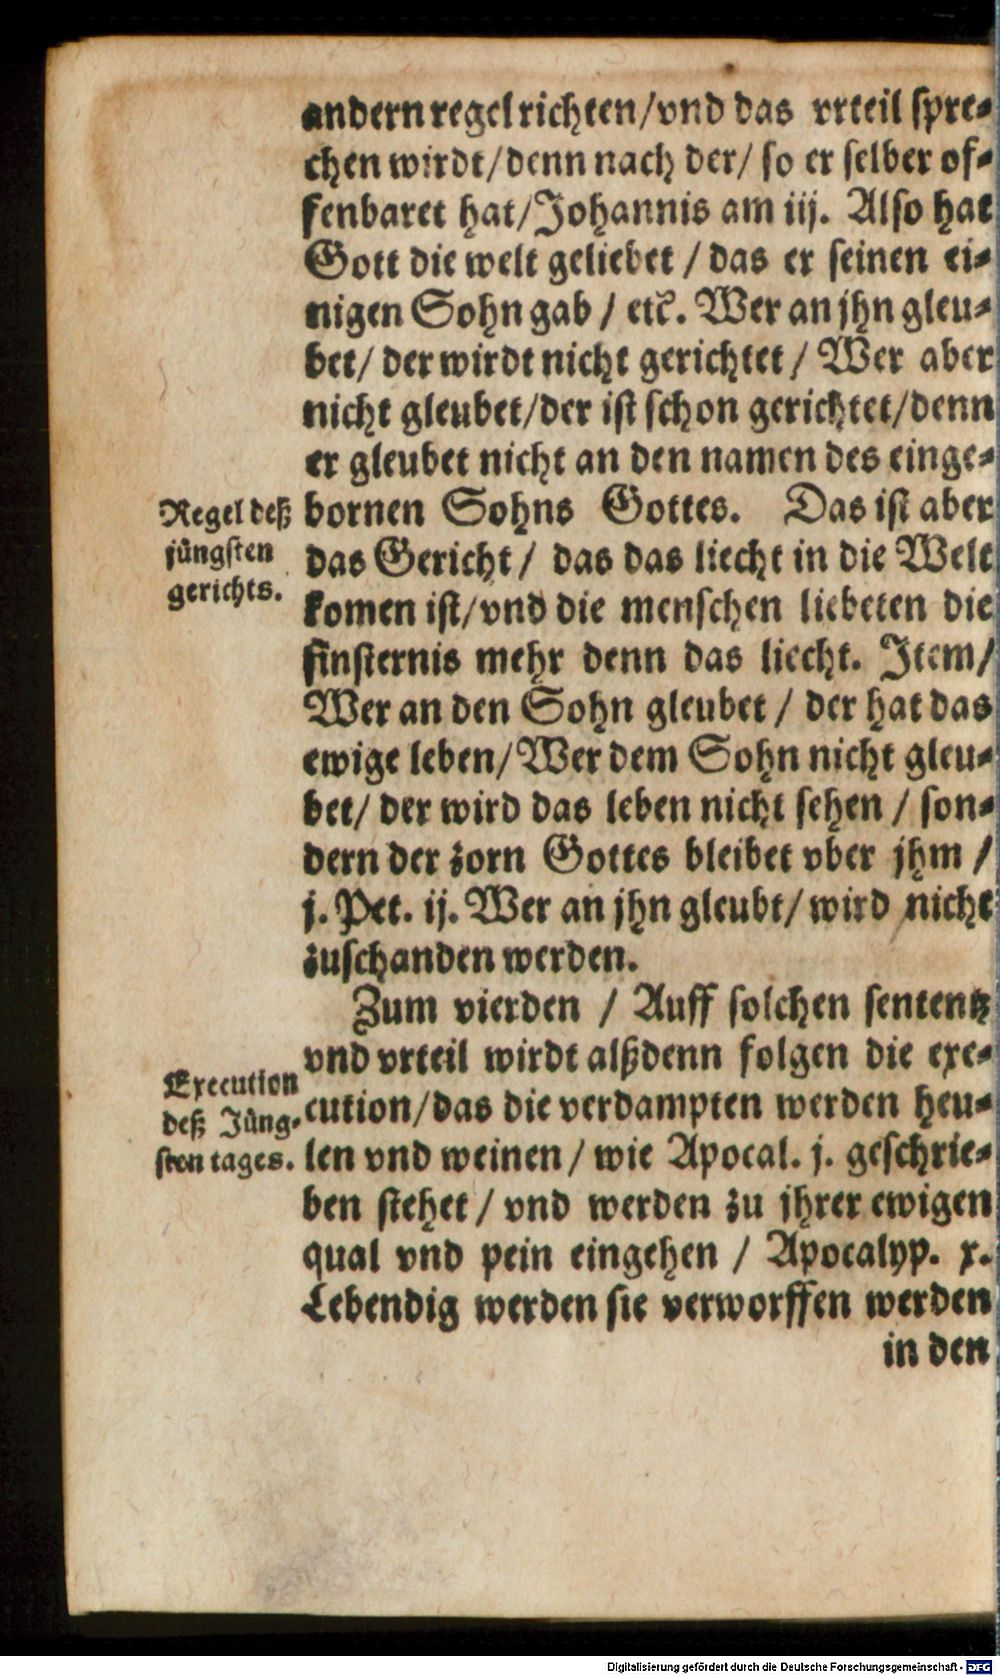 andern regel richten/vnd das vrteil spre⸗
chen wirdt/denn nach der/ so er selber of⸗
fenbaret hat/Johannis am iij. Also hat
Gott die welt geliebet / das er seinen ei⸗
nigen Sohn gab / etc. Wer an jhn gleu⸗
bet/ der wirdt nicht gerichtet / Wer aber
nicht gleubet/der ist schon gerichtet/denn
er gleubet nicht an den namen des einge⸗
Regel deß
jüngsten
gerichts.
bornen Sohns Gottes. Das ist aber
das Gericht / das das liecht in die Welt
komen ist/vnd die menschen liebeten die
finsternis mehr denn das liecht. Item/
Wer an den Sohn gleubet / der hat das
ewige leben/Wer dem Sohn nicht gleu⸗
bet/ der wird das leben nicht sehen / son⸗
dern der zorn Gottes bleibet vber jhm /
j. Pet. ij. Wer an jhn gleubt/ wird nicht
zuschanden werden.
Zum vierden / Auff solchen sententz
vnd vrteil wirdt alßdenn folgen die exe⸗
Execution
deß Jüng⸗
sten tages.
cution/das die verdampten werden heu⸗
len vnd weinen / wie Apocal. j. geschrie⸗
ben stehet / vnd werden zu jhrer ewigen
qual vnd pein eingehen / Apocalyp. x.
Lebendig werden sie verworffen werden
in den
Digitalisierung gefördert durch die Deutsche Forschungsgemeinschaft - DFG